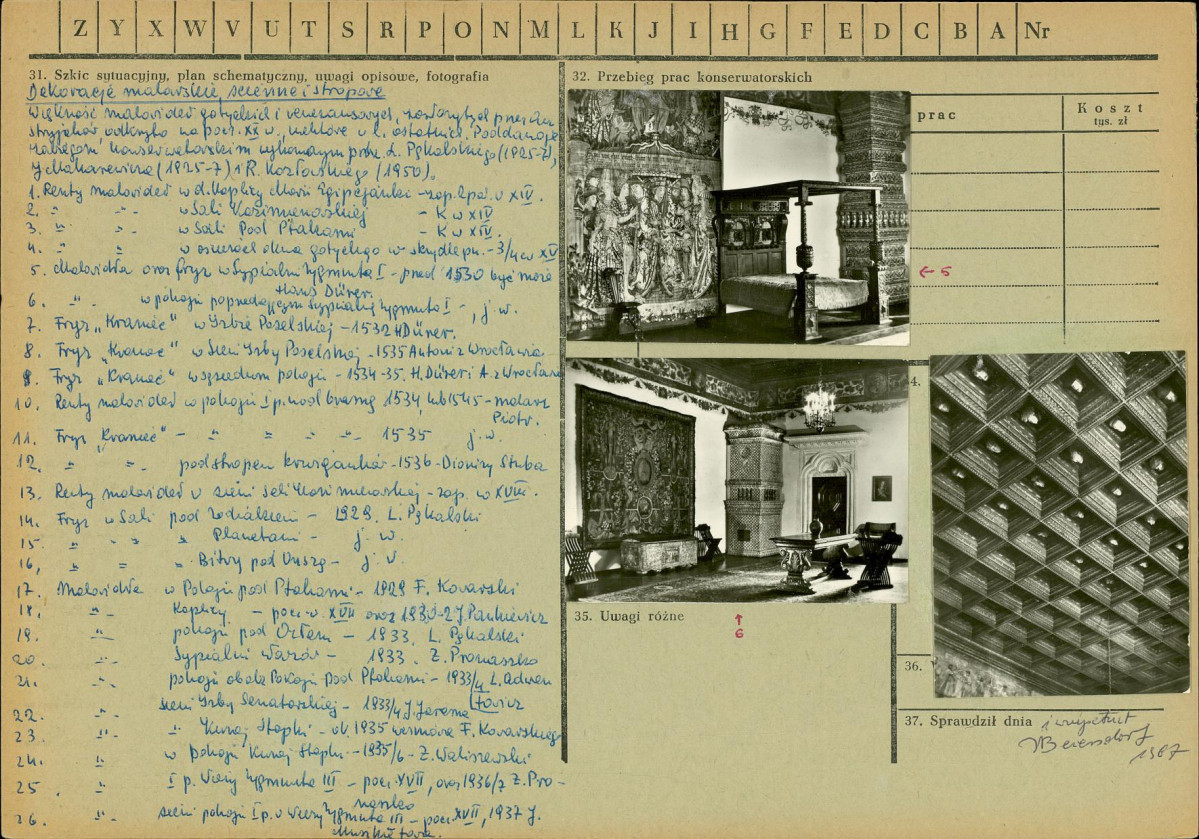 Z Y X W V U T S R P O N M L K J I H G F E D C B A Nr
31. Szkic sytuacyjny, plan schematyczny, uwagi opisowe, fotografia
Dekoracje malarskie, ścienne i stropowe
Większość malowideł gotyckich i renesansowych,
odkryto na pocz. XX w., niektóre w l. ostatnich. Poddano je
zabiegom konserwatorskim wykonanym przez Ł. Pękalskiego (1925-7),
J. Makarewicza (1925-7) i R. Kozłowskiego (1950).
1. Reszty malowideł w d. Kaplicy Marii Egipcjanki - zap. 2 poł. w XIV.
2. " " w Sali Kazimierowskiej - K w XIV
3. " " w Sali Pod Ptakami - K w XIV.
4. " " w okna gotyckiego w skrzydle pn. - 3/4 w XV
5. Malowidła oraz fryz w Sypialni Zygmunta I - przed 1530 być może
Hans Dürer.
6. " w pokoju poprzedzającym sypialnię Zygmunta I -, j w.
7. Fryz " " w Izbie Poselskiej - 1532 H Dürer.
8. Fryz " " w Sieni Izby Poselskiej - 1535 Antoni z Wrocławia
9. Fryz " " w sąsiednim pokoju - 1534-35. H. Dürer i A. z Wrocławia
10. Reszty malowideł w pokoju I p. nad bramą 1534, lub 1545 - malarz
Piotr.
11. Fryz " " - " " " " 1535 j. w.
12. " " pod stropem - 1536 - Dionizy Stuba
13. Reszty malowideł w sieni Sali Kazimierowskiej - zap. w XVIII.
14. Fryz w Sali pod Zodiakiem - 1929. L. Pękalski
15. " " " Planetami - j. w.
16. " " " Bitwy pod Orszą - j. w
17. Malowidła w Pokoju pod Ptakami - 1929 F. Kowarski
18. " Kaplicy - pocz. w. XVII oraz J. Pankiewicz
19. " pokoju pod Orłem - 1933. L. Pękalski
20. " Sypialni Wazów - 1933. Z. Pronaszko
21. " pokoju obok Pokoju pod Ptakami - 1933/4 L. Adwen
towicz
22. " sieni Izby Senatorskiej - 1933/4 J. Jarema
23. " " Kurzej Stopki - ok. 1935 F. Kowarskiego
24. " w Pokoju Kurzej Stopki - 1935/6 - Z. Waliszewski
25. " I p. Wieży Zygmunta III - pocz. XVII, oraz 1936/7 Z. Pro-
naszko
26. " sieni pokoju I p. w Wieży Zygmunta III - pocz. XVII, 1937 J.
32. Przebieg prac konserwatorskich
prac
Koszt
tys. zł
← 5
4.
35. Uwagi różne
↑
6
36.
37. Sprawdził dnia
1987